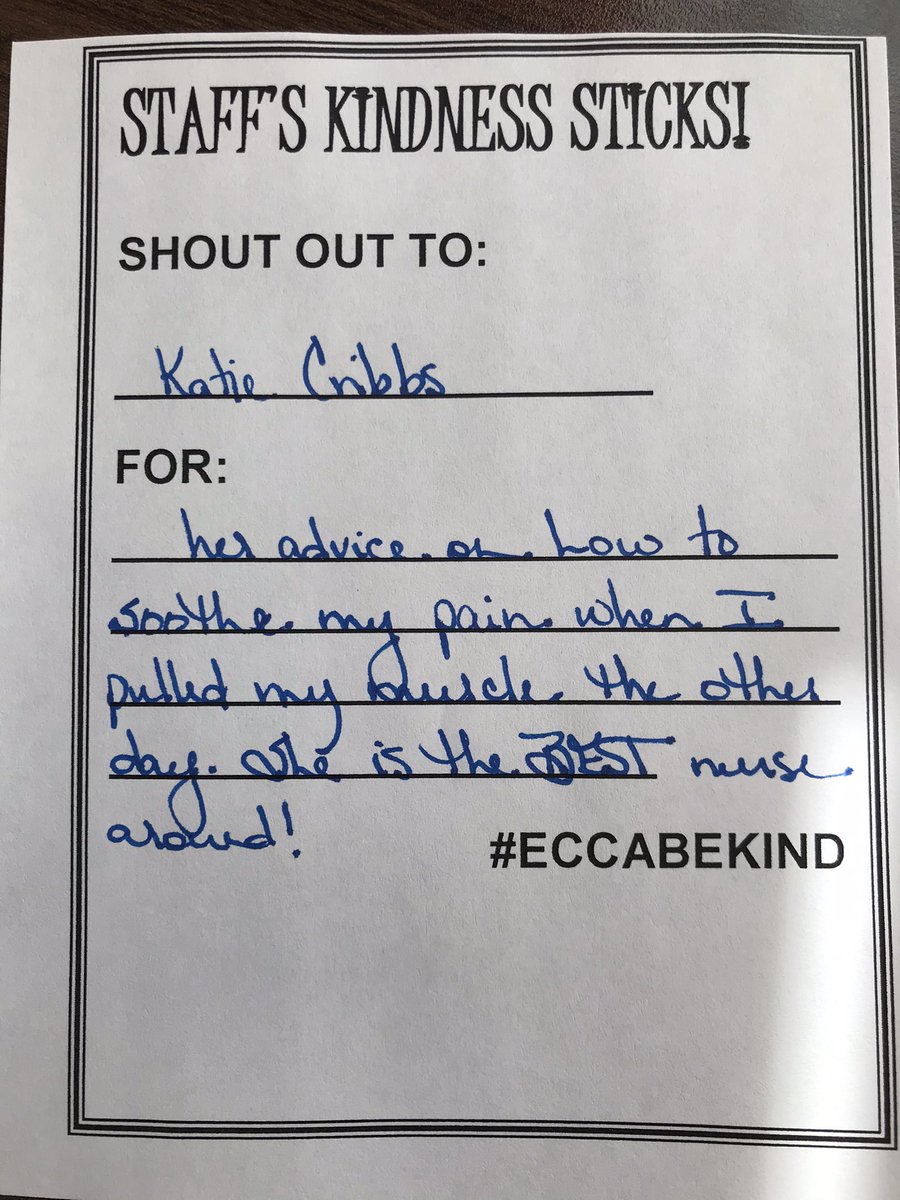 STAFF'S KINDNESS STICKS!
SHOUT OUT TO:
Katie Cribbs
FOR:
her advice on how to
soothe my pain when I
pulled my muscle the other
day. She is the BEST nurse
around!
#ECCABEKIND